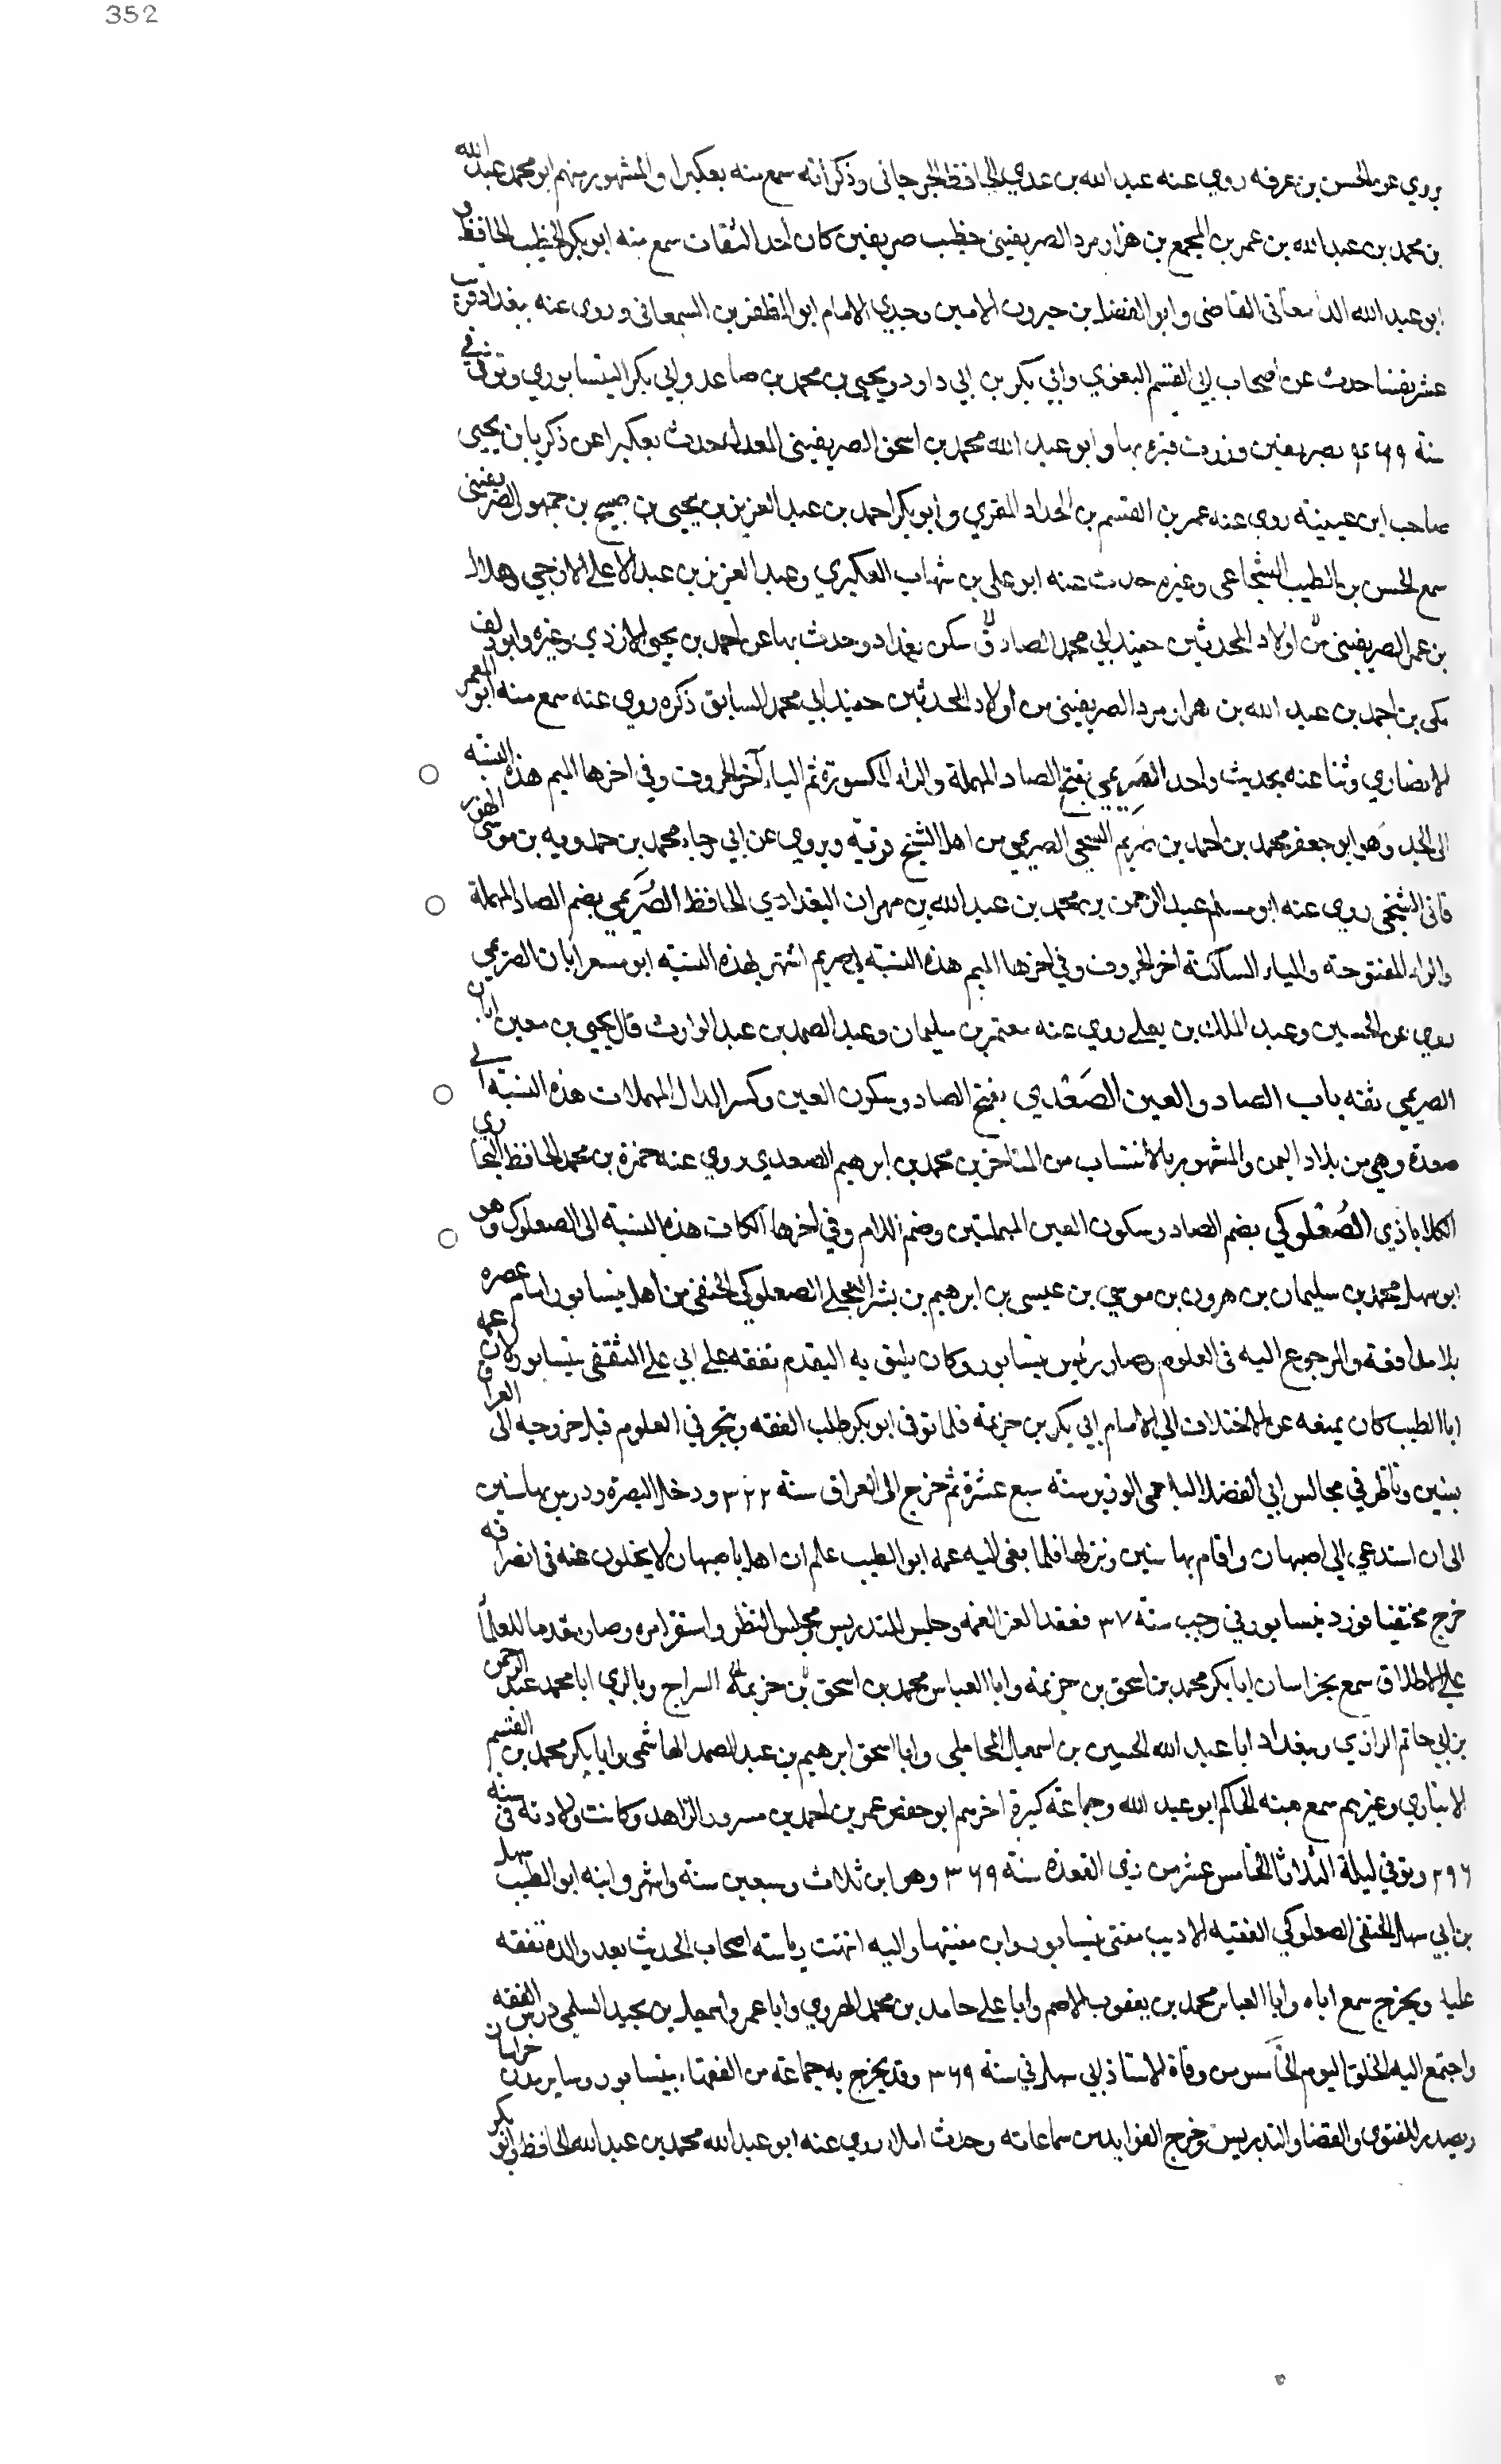 352
يروي عن الحسن بن عرفه روى عنه عبد الله بن عدي الحافظ الجرجاني وذكر انه سمع منه بعكبرا والمشهور منهم ابو محمد عبد الله
بن محمد بن عبد الله بن عمر بن المجمع بن هزارمرد الصريفيني خطيب صريفين كان احد الثقات سمع منه ابو بكر الخطيب الحافظ و
ابو عبد الله الدامغاني القاضي وابو الفضل بن خيرون الامين وجدي الامام ابو المظفر بن السمعاني وروى عنه ببغداد قريب
عشر نفسا حدث عن اصحاب ابي القسم البغوي وابي بكر بن ابي داود ويحيى بن محمد بن صاعد وابي بكر النيسابوري وتوفي في
سنة ۴۶۹ بصريفين وزرت قبره بها وابو عبد الله محمد بن اسحق الصريفيني المعدل حدث بعكبرا عن زكريا بن يحيى
صاحب ابن عيينة روى عنه عمر بن القسم بن الحداد المقري وابو بكر احمد بن عبد العزيز بن يحيى بن صبيح بن جمهول الصريفيني
سمع الحسن بن الطيب الشجاعي وغيره حدث عنه ابو علي بن شهاب العكبري وعبد العزيز بن عبد الاعلى الازجي وهلال
بن عمر الصريفيني من اولاد المحدثين حفيد ابي محمد الصادق سكن بغداد وحدث بها عن احمد بن يحيى الازدي وغيره وابو دلف
مكي بن احمد بن عبد الله بن هزارمرد الصريفيني من اولاد المحدثين حفيد ابي محمد السابق ذكره روى عنه سمع منه ابو المعمر
الانصاري وثنا عنه بحديث واحد الصَرِيمي بفتح الصاد المهملة والراء المكسورة ثم الياء آخر الحروف وفي اخرها الميم هذه النسبه
الى الجد وهو ابو جعفر محمد بن احمد بن صريم السيحي الصريمي من اهل الشيخ قرية ويروي عن ابي رجاء محمد بن حمدويه بن موسى الهور
قاني الشيخي روى عنه ابو مسلم عبد الرحمن بن محمد بن عبد الله بن مهران البغدادي الحافظ الصُرَيمي بضم الصاد المهملة
والراء المفتوحة والياء الساكنة اخر الحروف وفي اخرها الميم هذه النسبة الى صريم اشتهر بهذه النسبة ابو مسعر ابان الصريمي
روى عن الحسين وعبد الملك بن يعلى روى عنه معتمر بن سليمان وعبد الصمد بن عبد الوارث قال يحيى بن معين ابان
الصريمي ثقه باب الصاد والعين الصَعْدي بفتح الصاد وسكون العين وكسر الدال المهملات هذه النسبة الى
صعدة وهي من بلاد اليمن والمشهور بالانتساب من المتاخرين محمد بن ابرهيم الصعدي روى عنه حمزة بن محمد الحافظ البخاري
الكلاباذي الصُعْلوكي بضم الصاد وسكون العين المهملتين وضم اللام وفي اخرها الكاف هذه النسبة الى الصعلوك وهو
ابو سهل محمد بن سليمان بن هرون بن موسى بن عيسى بن ابرهيم بن بشر العجلي الصعلوكي الحنفي من اهل نيسابور امام عصره
بلا مدافعة والمرجوع اليه في العلوم وصار رئيس نيسابور وكان يليق به التقدم تفقه على ابي علي الثقفي بنيسابور لان عمه
ابا الطيب كان يمنعه عن الاختلاف الى الامام ابي بكر بن خزيمة فلما توفي ابو بكر طلب الفقه وتبحر في العلوم قبل خروجه الى العراق
بسنين وناظر في مجالس ابي الفضل البلعمي الوزير سنة سبع عشرة ثم خرج الى العراق سنة ۳۲۲ ودخل البصرة ودرس بها سنين
الى ان استدعي الى اصبهان واقام بها سنين ونزلها فلما نعى اليه عمه ابو الطيب علم ان اهل اصبهان لا يخلون عنه في انصرافه
خرج مختفيا فورد نيسابور في رجب سنة ۳۷ فعقد العزا لعمه وجلس للتدريس ومجلس النظر واستقر امره وصار مقدما للعلما
على الاطلاق سمع بخراسان ابا بكر محمد بن اسحق بن خزيمة وابا العباس محمد بن اسحق بن خزيمة السراج وبالري ابا محمد عبد الرحمن
بن ابي حاتم الرازي وببغداد ابا عبد الله الحسين بن اسمعيل المحاملي وابا اسحق ابرهيم بن عبد الصمد الهاشمي وابا بكر محمد بن القسم
الانباري وغيرهم سمع منه الحاكم ابو عبد الله وجماعة كبيرة اخرهم ابو حفص عمر بن احمد بن مسرور الزاهد وكانت ولادته في سنة
۲۹۶ وتوفي ليلة الثلاثا الخامس عشر من ذي القعدة سنة ۳۶۹ وهو ابن ثلاث وسبعين سنة واشهر وابنه ابو الطيب سهل
بن ابي سهل الحنفي الصعلوكي الفقيه الاديب مفتي نيسابور وابن مفتيها واليه انتهت رياسة اصحاب الحديث بعد والده تفقه
عليه وتخرج سمع اباه وابا العباس محمد بن يعقوب الاصم وابا علي حامد بن محمد الهروي وابا عمرو اسمعيل بن نجيد السلمي درس الفقه
واجتمع اليه الخلق اليوم الخامس من وفاة الاستاذ ابي سهل في سنة ۳۶۹ وقد تخرج به جماعة من الفقهاء بنيسابور وساير مدن خراسان
وتصدر للفتوى والقضا والتدريس وخرج الفوايد من سماعاته وحدث املا روى عنه ابو عبد الله محمد بن عبد الله الحافظ وابو بكر